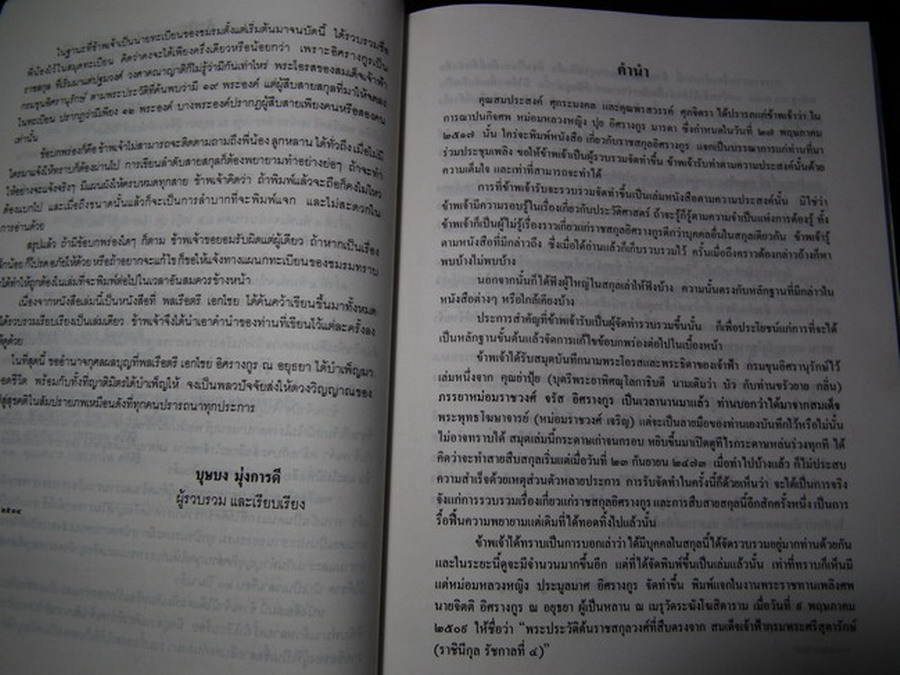 ในฐานะที่ข้าพเจ้าเป็นนายทะเบียนของชมรมตั้งแต่เริ่มต้นมาจนบัดนี้ ได้รวบรวมชื่อ
พี่น้องไว้ในสมุดทะเบียน คิดว่าคงจะได้เพียงครึ่งเดียวหรือน้อยกว่า เพราะอิศรางกูรเป็น
ราชสกุล ที่เริ่มมาแต่ปฐมวงศ์ วงศาคณาญาติก็ไม่รู้ว่ามีกันเท่าไหร่ พระโอรสของสมเด็จเจ้าฟ้า
กรมขุนอิศรานุรักษ์ ตามพระประวัติที่ค้นพบว่ามี ๑๙ พระองค์ แต่ผู้สืบสายสกุลที่มาให้จดลง
ในทะเบียน ปรากฏว่ามีเพียง ๑๒ พระองค์ บางพระองค์ปรากฏผู้สืบสายเพียงคนหรือสองคน
เท่านั้น
ข้อบกพร่องก็คือ ข้าพเจ้าไม่สามารถจะติดตามถามถึงพี่น้อง ลูกหลาน ได้ทั่วถึง เมื่อไม่มี
ใครมาแจ้งให้ทราบก็ต้องผ่านไป การเรียนลำดับสายสกุลก็ต้องพยายามทำอย่างย่อๆ ถ้าจะทำ
ให้อย่างจะแจ้งจริงๆ มีแผนผังให้ครบหมดทุกสาย ข้าพเจ้าคิดว่า ถ้าพิมพ์แล้วจะถือก็คงไม่ไหว
ต้องแบกไป และเมื่อถึงขนาดนั้นแล้วก็จะเป็นการลำบากที่จะพิมพ์แจก และไม่สะดวกใน
การอ่านด้วย
สรุปแล้ว ถ้ามีข้อบกพร่องใดๆ ก็ตาม ข้าพเจ้าขอยอมรับผิดแต่ผู้เดียว ถ้าหากเป็นเรื่อง
เล็กน้อย ก็โปรดอภัยให้ด้วย หรือถ้าอยากจะแก้ไข ก็ขอให้แจ้งทางแผนกทะเบียนของชมรมทราบ
จะได้ทำให้ถูกต้องในเล่มที่จะพิมพ์ต่อไปในเวลาอันสมควรข้างหน้า
เนื่องจากหนังสือเล่มนี้เป็นหนังสือที่ พลเรือตรี เอกไชย ได้ค้นคว้าเขียนขึ้นมาทั้งหมด
ได้รวบรวมเรียบเรียงเป็นเล่มเดียว ข้าพเจ้าจึงได้นำเอาคำนำของท่านที่เขียนไว้แต่ละครั้งลง
ด้วย
ในที่สุดนี้ ขออำนาจกุศลผลบุญที่พลเรือตรี เอกไชย อิศรางกูร ณ อยุธยา ได้บำเพ็ญมา
ตลอดชีวิต พร้อมกับทั้งที่ญาติมิตรได้บำเพ็ญให้ จงเป็นพลวปัจจัยส่งให้ดวงวิญญาณของ
สู่สุขคติในสัมปรายภพเหมือนดังที่ทุกคนปรารถนาทุกประการ
บุษบง มุ่งการดี
ผู้รวบรวม และเรียบเรียง
คำนำ
คุณสมประสงค์ ศุกระมงคล และคุณพรสวรรค์ ศุกจิตรา ได้ปรารภแก่ข้าพเจ้าว่า ใน
การฌาปนกิจศพ หม่อมหลวงหญิง ปุย อิศรางกูร มารดา ซึ่งกำหนดในวันที่ ๒๗ พฤษภาคม
๒๕๑๗ นั้น ใคร่จะพิมพ์หนังสือ เกี่ยวกับราชสกุลอิศรางกูร แจกเป็นบรรณาการแก่ท่านที่มา
ร่วมประชุมเพลิง ขอให้ข้าพเจ้าเป็นผู้รวบรวมจัดทำขึ้น ข้าพเจ้ารับทำตามความประสงค์นั้นด้วย
ความเต็มใจ และเท่าที่สามารถจะทำได้
การที่ข้าพเจ้ารับจะรวบรวมจัดทำขึ้นเป็นเล่มหนังสือตามความประสงค์นั้น มิใช่ว่า
ข้าพเจ้ามีความรอบรู้ในเรื่องเกี่ยวกับประวัติศาสตร์ ถ้าจะรู้ก็รู้ตามความจำเป็นแห่งการต้องรู้ ทั้ง
ข้าพเจ้าก็เป็นผู้ไม่รู้เรื่องราวเกี่ยวแก่ราชสกุลอิศรางกูรดีกว่าบุคคลอื่นในสกุลเดียวกัน ข้าพเจ้ารู้
ตามหนังสือที่มีกล่าวถึง ซึ่งเมื่อได้อ่านแล้วก็เก็บรวบรวมไว้ ครั้นเมื่อถึงคราวต้องกล่าวอ้างก็หา
พบบ้างไม่พบบ้าง
นอกจากนั้นก็ได้ฟังผู้ใหญ่ในสกุลเล่าให้ฟังบ้าง ความนั้นตรงกับหลักฐานที่มีกล่าวใน
หนังสือต่างๆ หรือใกล้เคียงบ้าง
ประการสำคัญที่ข้าพเจ้ารับเป็นผู้จัดทำรวบรวมขึ้นนั้น ก็เพื่อประโยชน์แก่การที่จะได้
เป็นหลักฐานขั้นต้นแล้วจัดการแก้ไขข้อบกพร่องต่อไปในเบื้องหน้า
ข้าพเจ้าได้รับสมุดบันทึกนามพระโอรสและพระธิดาของเจ้าฟ้า กรมขุนอิศรานุรักษ์ไว้
เล่มหนึ่งจาก คุณย่าปุ้ย (บุตรีพระยาพิศณุโลกาธิบดี นามเดิมว่า บัว กับท่านขรัวยาย กลิ่น)
ภรรยาหม่อมราชวงศ์ จรัส อิศรางกูร เป็นเวลานานมาแล้ว ท่านบอกว่าได้มาจากสมเด็จ
พระพุทธโฆษาจารย์ (หม่อมราชวงศ์ เจริญ) แต่จะเป็นลายมือของท่านเองบันทึกไว้หรือไม่นั้น
ไม่อาจทราบได้ สมุดเล่มนี้กระดาษเก่าจนกรอบ หยิบขึ้นมาเปิดดูทีไรกระดาษหล่นร่วงทุกที ได้
คิดว่าจะทำสายสืบสกุลเริ่มแต่เมื่อวันที่ ๒๓ กันยายน ๒๔๗๓ เมื่อทำไปบ้างแล้ว ก็ไม่ประสบ
ความสำเร็จด้วยเหตุส่วนตัวหลายประการ การรับจัดทำในครั้งนี้ก็ด้วยเห็นว่า จะได้เป็นการจริง
จังแก่การรวบรวมเรื่องเกี่ยวแก่ราชสกุลอิศรางกูรและการสืบสายสกุลนี้อีกสักครั้งหนึ่ง เป็นการ
รื้อฟื้นความพยายามแต่เดิมที่ได้ทอดทิ้งไปแล้วนั้น
ข้าพเจ้าได้ทราบเป็นการบอกเล่าว่า ได้มีบุคคลในสกุลนี้ได้จัดรวบรวมอยู่มากท่านด้วยกัน
และในระยะนี้ดูจะมีจำนวนมากขึ้นอีก แต่ที่ได้จัดพิมพ์ขึ้นเป็นเล่มแล้วนั้น เท่าที่ทราบก็เห็นมี
แต่หม่อมหลวงหญิง ประมูลมาศ อิศรางกูร จัดทำขึ้น พิมพ์แจกในงานพระราชทานเพลิงศพ
นายจิตติ อิศรางกูร ณ อยุธยา ผู้เป็นหลาน ณ เมรุวัดระฆังโฆสิตาราม เมื่อวันที่ ๙ พฤษภาคม
๒๕๐๙ ให้ชื่อว่า “พระประวัติต้นราชสกุลวงศ์ที่สืบตรงจาก สมเด็จเจ้าฟ้ากรมพระศรีสุดารักษ์
(ราชินีกุล รัชกาลที่ ๔)”